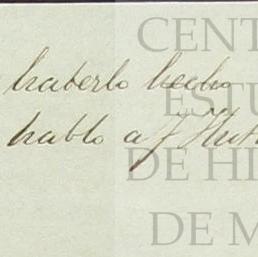 haberlo hecho
hablo a
CENT
ESTU
DE HI
DE M